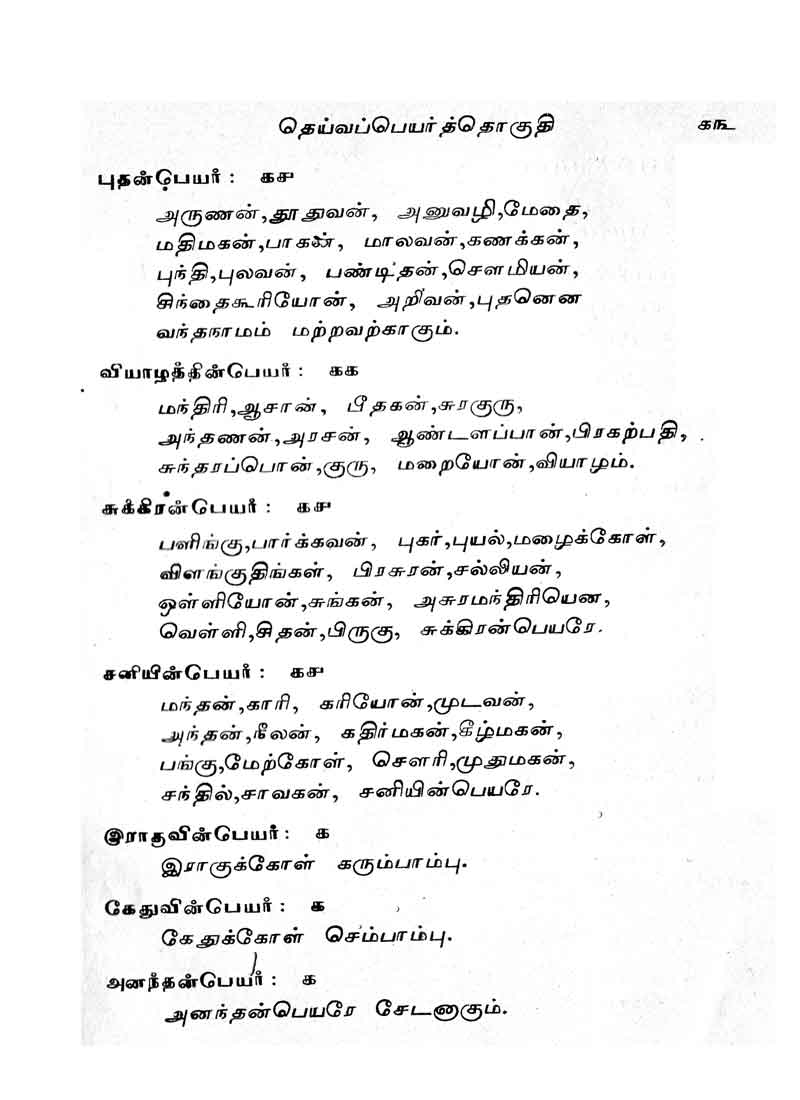 தெய்வப்பெயர்த்தொகுதி கரு
புதன்பெயர் : கச
அருணன்,தூதுவன், அனுவழி,மேதை,
மதிமகன்,பாகன், மாலவன்,கணக்கன்,
புந்தி,புலவன், பண்டிதன்,சௌமியன்,
சிந்தைகூரியோன், அறிவன்,புதனென
வந்தநாமம் மற்றவற்காகும்.
வியாழத்தின்பெயர் : கக
மந்திரி,ஆசான், பீதகன்,சுரகுரு,
அந்தணன்,அரசன், ஆண்டளப்பான்,பிரகற்பதி,
சுந்தரப்பொன்,குரு, மறையோன்,வியாழம்.
சுக்கிரன்பெயர் : கச
பளிங்கு,பார்க்கவன், புகர்,புயல்,மழைக்கோள்,
விளங்குதிங்கள், பிரசுரன்,சல்லியன்,
ஒள்ளியோன்,சுங்கன், அசுரமந்திரியென,
வெள்ளி,சிதன்,பிருகு, சுக்கிரன்பெயரே.
சனியின்பெயர் : கச
மந்தன்,காரி, கரியோன்,முடவன்,
அந்தன்,நீலன், கதிர்மகன்,கீழ்மகன்,
பங்கு,மேற்கோள், சௌரி,முதுமகன்,
சந்தில்,சாவகன், சனியின்பெயரே.
இராகுவின்பெயர் : க
இராகுக்கோள் கரும்பாம்பு.
கேதுவின்பெயர் : க
கேதுக்கோள் செம்பாம்பு.
அனந்தன்பெயர் : க
அனந்தன்பெயரே சேடனாகும்.